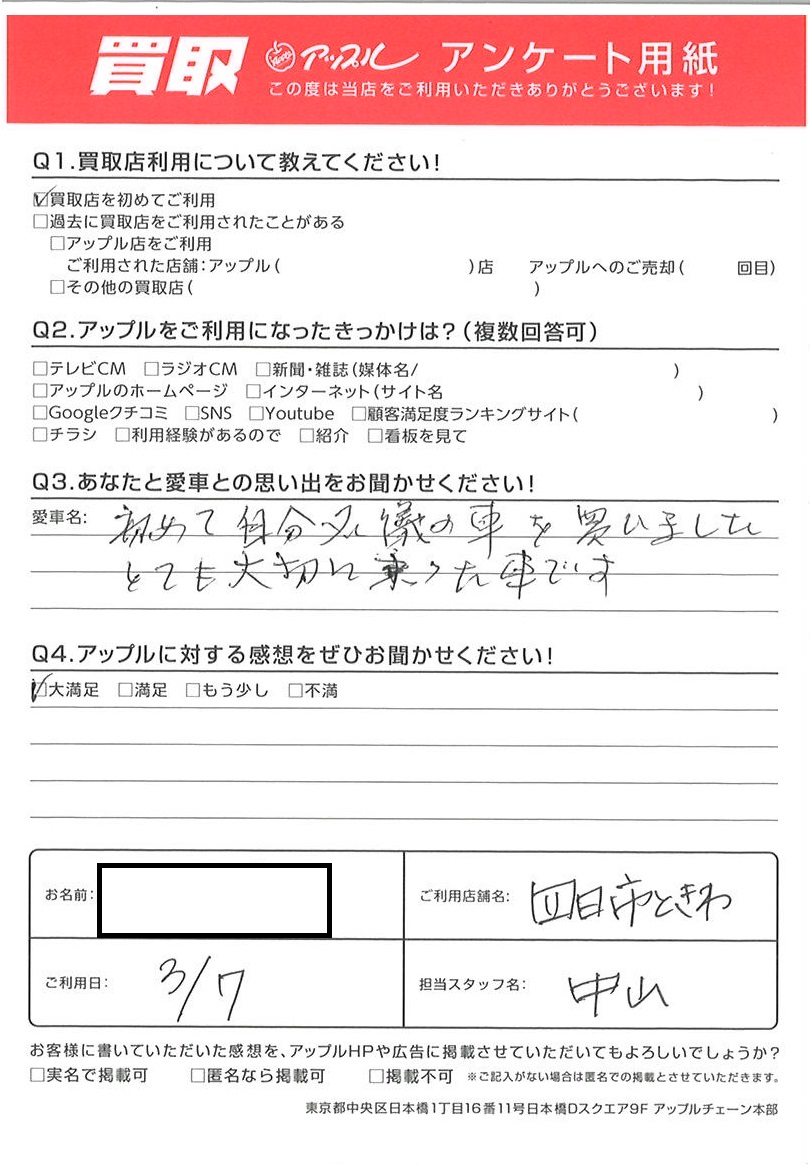 買取 アップル アンケート用紙
この度は当店をご利用いただきありがとうございます!
Q1.買取店利用について教えてください!
☑買取店を初めてご利用
□過去に買取店をご利用されたことがある
□アップル店をご利用
ご利用された店舗:アップル( )店 アップルへのご売却( 回目)
□その他の買取店( )
Q2.アップルをご利用になったきっかけは?(複数回答可)
□テレビCM □ラジオCM □新聞・雑誌(媒体名/ )
□アップルのホームページ □インターネット(サイト名 )
□Googleクチコミ □SNS □Youtube □顧客満足度ランキングサイト( )
□チラシ □利用経験があるので □紹介 □看板を見て
Q3.あなたと愛車との思い出をお聞かせください!
愛車名: 初めて自分名儀の車を買いました
とても大切に乗った車です
Q4.アップルに対する感想をぜひお聞かせください!
☑大満足 □満足 □もう少し □不満
お名前: ご利用店舗名: 四日市ときわ
ご利用日: 3/7 担当スタッフ名: 中山
お客様に書いていただいた感想を、アップルHPや広告に掲載させていただいてもよろしいでしょうか?
□実名で掲載可 □匿名なら掲載可 □掲載不可 ※ご記入がない場合は匿名での掲載とさせていただきます。
東京都中央区日本橋1丁目16番11号日本橋Dスクエア9F アップルチェーン本部